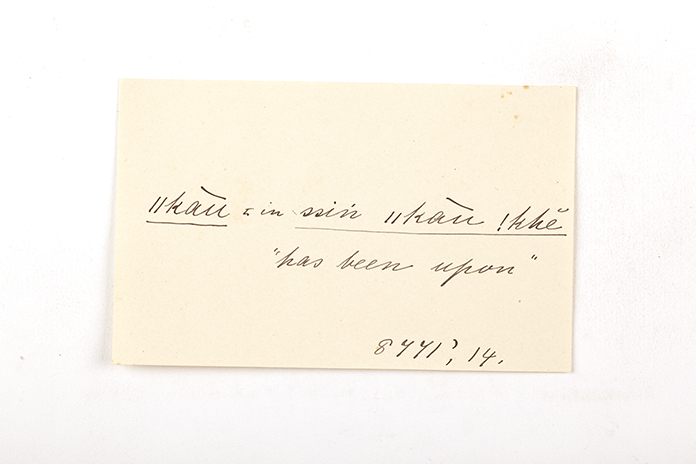 ǁkāu : in ssiń ǁkāu !khĕ
"has been upon"
8771', 14.